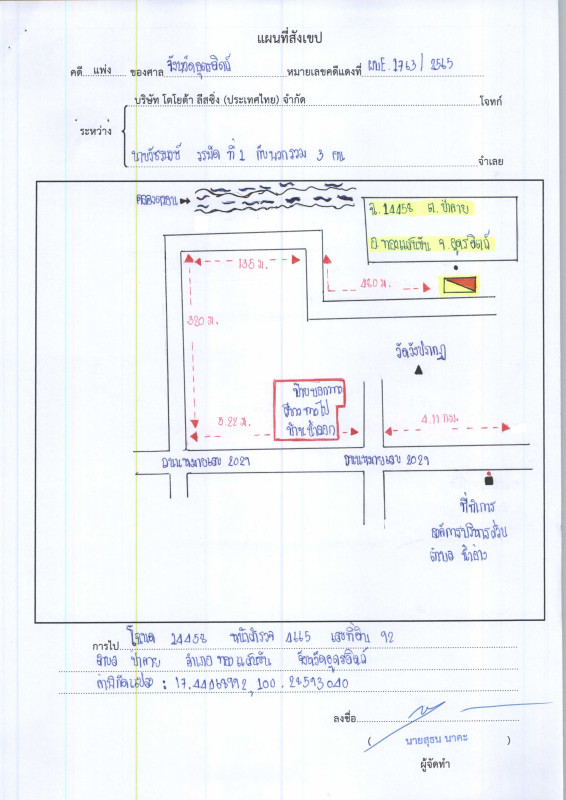 แผนที่สังเขป
คดี แพ่ง ของศาล จังหวัดอุตรดิตถ์ หมายเลขคดีแดงที่ ผบE. 1763 / 2565
บริษัท โตโยต้า ลีสซิ่ง (ประเทศไทย) จำกัด โจทก์
ระหว่าง
ที่ 1 กับพวกรวม 3 คน จำเลย
ฉ. 14458 ต. ป่าคาย
อ. ทองแสนขัน จ. อุตรดิตถ์
135 ม.
460 ม.
320 ม.
วัดวังปรากฏ
ป้ายบอกทาง
ไป
3.22 ม.
4.11 กม.
ถนนหมายเลข 2029
ถนนหมายเลข 2029
ที่ทำการ
องค์การบริหารส่วน
ตำบล น้ำอ่าง
การไป โฉนด 14458 หน้าสำรวจ 4665 เลขที่ดิน 92
ตำบล ป่าคาย อำเภอ ทองแสนขัน จังหวัดอุตรดิตถ์
ค่าพิกัดแปลง : 17.44468992, 100.28593040
ลงชื่อ
( นายสุธน นาคะ )
ผู้จัดทำ